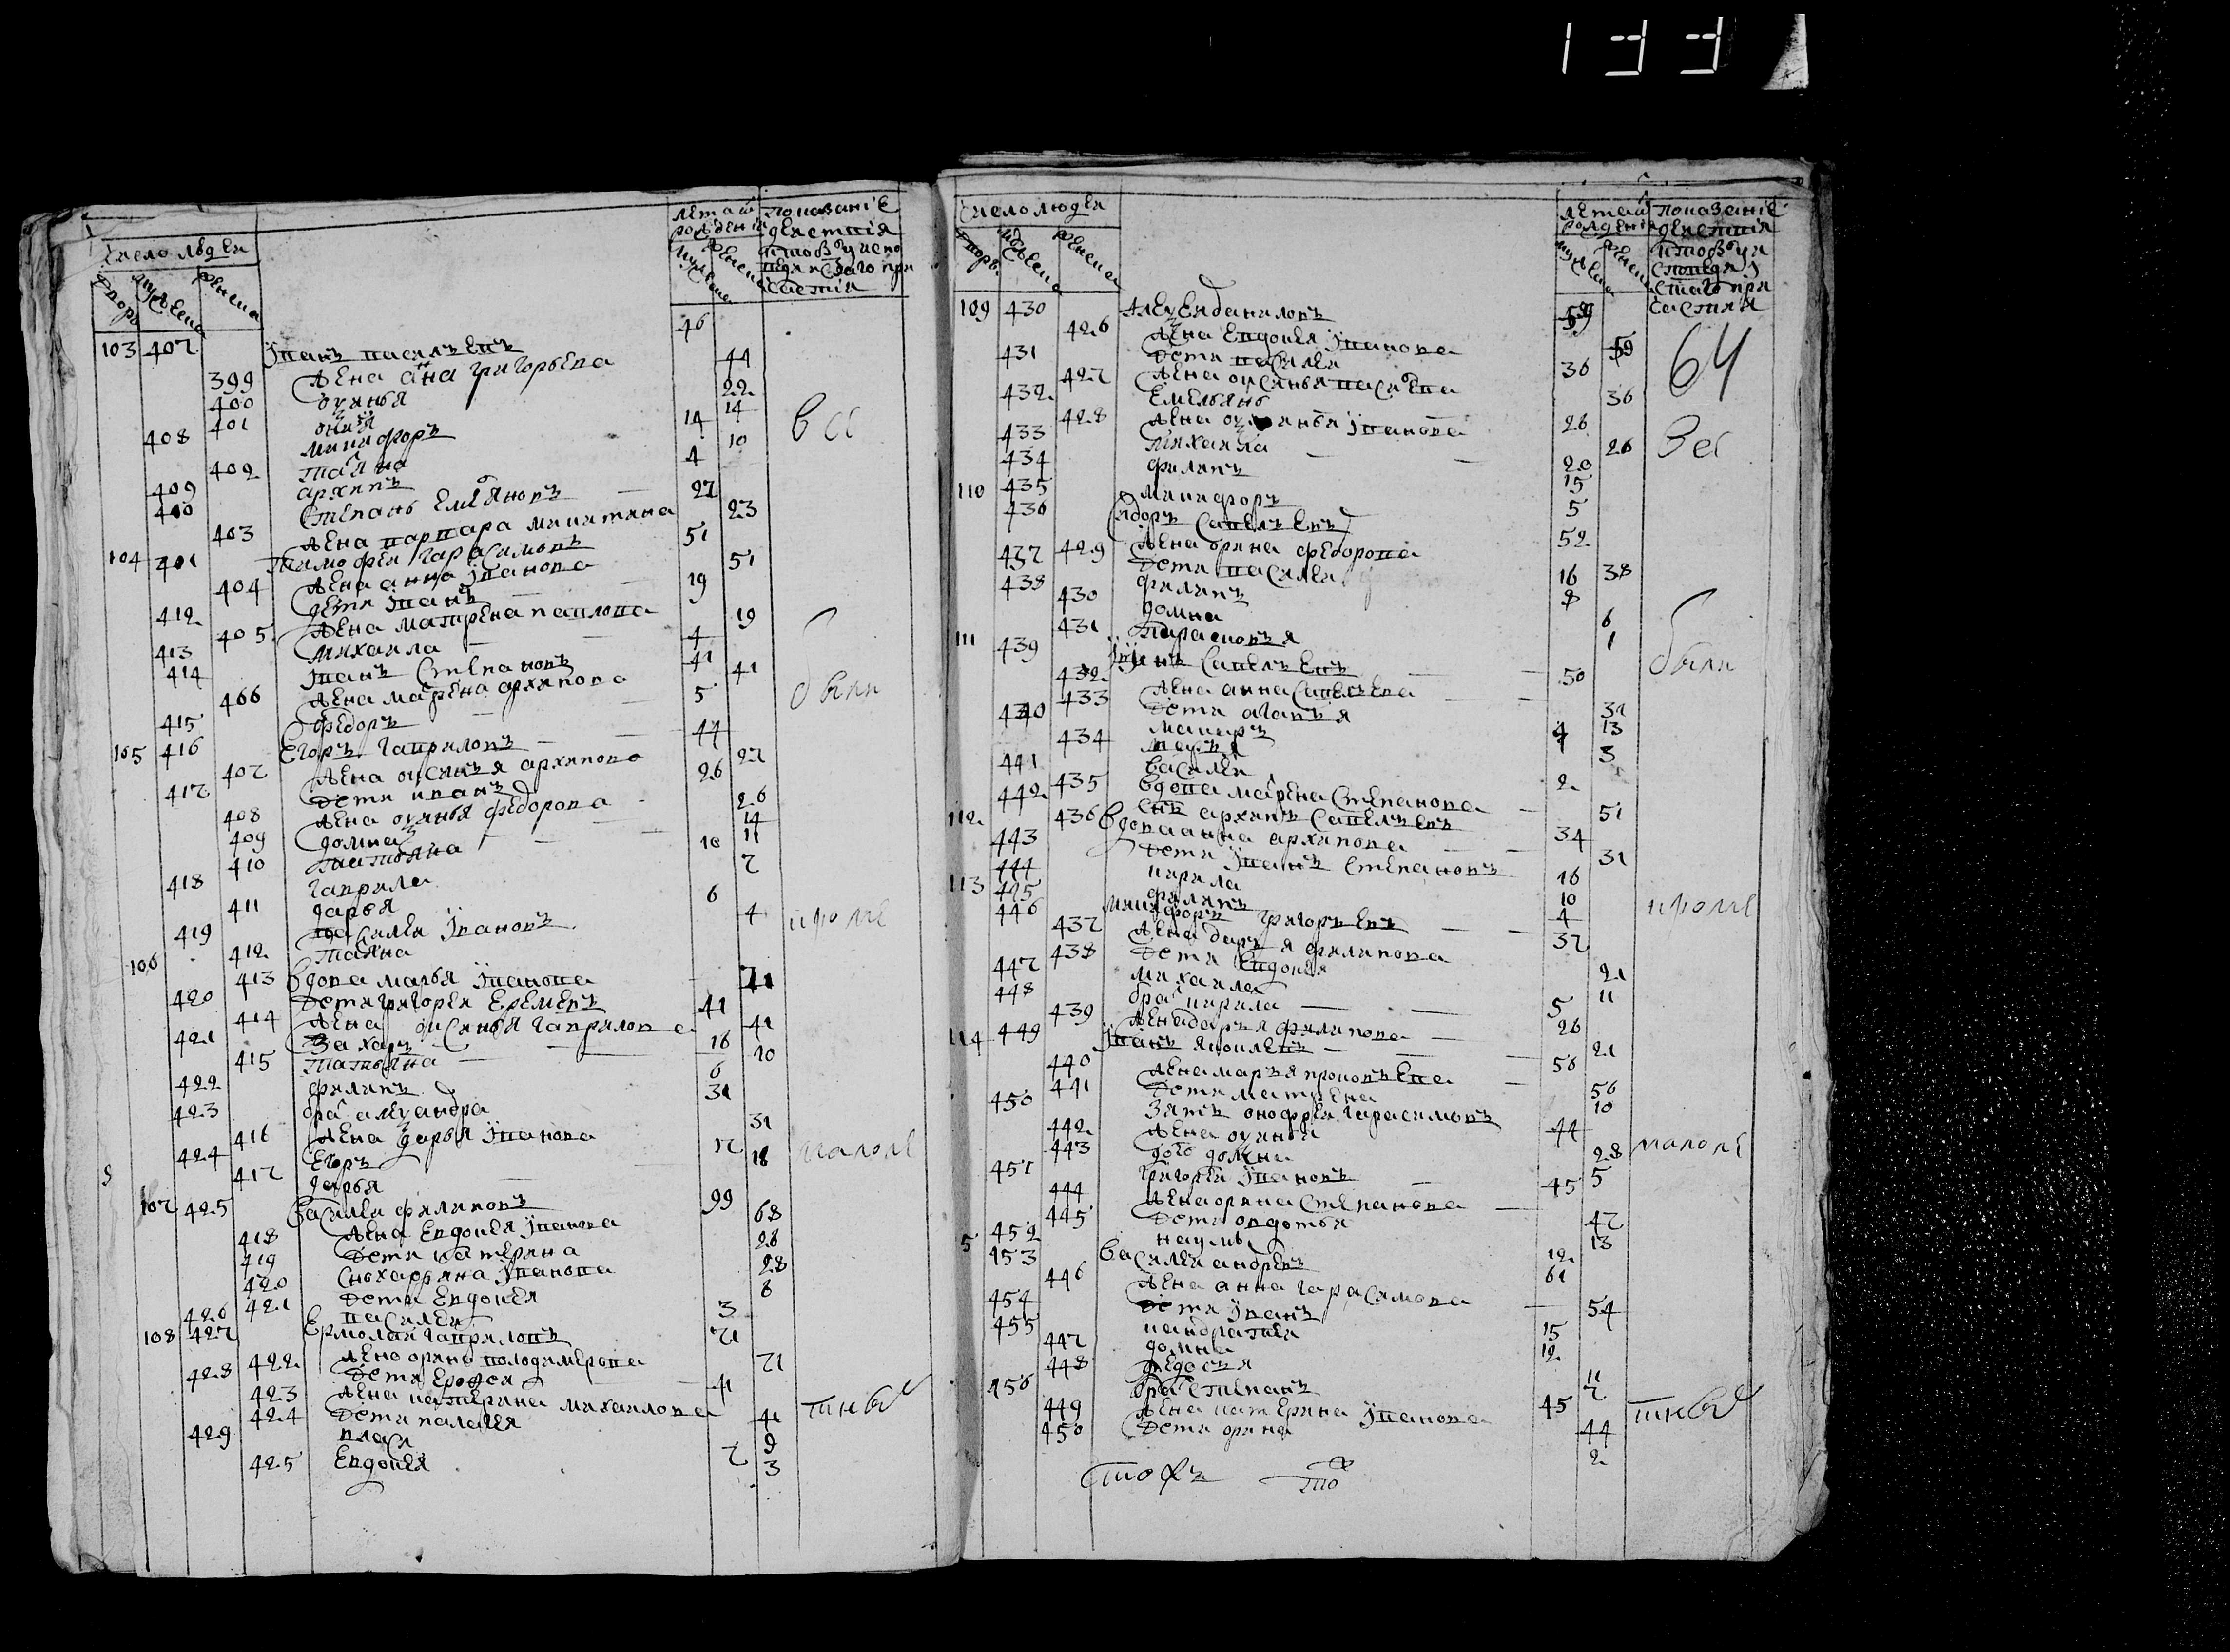 133
число людей
двор мужеска женска
лет от рождения
мужеска женска
показание действия кто был у исповеди и святаго причастия
103 407 Иванъ васильевъ 46
399 жена анна григорьева 44
400 оксинья 22
401 14
408 никифоръ 14
402 татьяна 10
409 архипъ 4
410 степанъ емельяновъ 27
403 жена варвара никитина 23
104 401 тимофей гарасимовъ 51
404 жена анна Иванова 51
412 дети Иванъ 19
405 жена матрена павлова 19
413 михаила 4
414 Иванъ степановъ 41
406 жена матрена архипова 41
415 федоръ 5
105 416 егоръ гавриловъ 44
407 жена оксинья архипова 27
417 дети иванъ 26
408 жена федорова 26
409 домна 14
410 татьяна 11
418 гаврила 10
411 дарья 7
419 василей Ивановъ 6
412 татьяна 4
106 413 вдова марья Иванова 71
420 дети григорей еремеевъ 41
414 жена оксинья гаврилова 41
421 захаръ 16
415 татьяна 10
422 филипъ 6
423 брат александра 31
416 жена дарья Иванова 31
424 егоръ 12
417 дарья 18
107 425 василей филиповъ 99
418 жена евдокея Иванова 68
419 дети катерина 28
420 сноха арина Иванова 28
421 дети евдокея 8
426 василей 3
108 427 ермолай гавриловъ 71
422 жена орина володимерова 71
428 дети ерофея 41
423 жена катерина михаилова 41
424 дети палагея 9
429 власъ 7
425 евдокея 3
вси
были
кроме
малоле
тныхъ
число людей
двор мужеска женска
лет от рождения
мужеска женска
показание действия кто был у исповеди и святаго причастия
64
109 430 алексей даниловъ 59
426 жена евдокея Иванова 59
431 дети василей 36
427 жена оксинья васильева 36
432 емельянъ 26
428 жена Иванова 26
433 михаила 20
434 филипъ 15
435 никифоръ 5
110 436 сидоръ савельевъ 52
429 жена орина федорова 38
437 дети василей 16
438 филипъ 8
430 домна 6
431 парасковья 1
111 439 савельевъ 50
432 жена анна савельева 31
433 дети агапья 13
440 макаръ
434 марья 3
441 василей 2
435 вдова матрена степанова 51
112 442 снъ архипъ савельевъ 34
436 вдова анна архипова 31
443 дети Иванъ степановъ 16
444 кирила 10
445 филипъ 4
113 446 никифоръ григорьевъ 37
437 жена дарья филипова 21
438 дети евдокея 11
447 михаила 5
448 брат кирила 26
439 жена дарья филипова 21
114 449 Иванъ яковлевъ 56
440 жена марья прокопьева 56
441 дети матрена 10
450 зять онофрей гарасимовъ 44
442 жена 28
443 доч домна 5
451 григорей Ивановъ 45
444 жена орина степанова 47
445 дети овдотья 13
452 наумъ 12
5 453 василей андреевъ 61
446 жена анна гарасимова 54
454 дети Иванъ 15
455 кандратей 12
447 домна 11
448 федосья 7
456 брат степанъ 45
449 жена катерина Иванова 44
450 дети орина 2
Вси
были
кроме
малоле
тныхъ